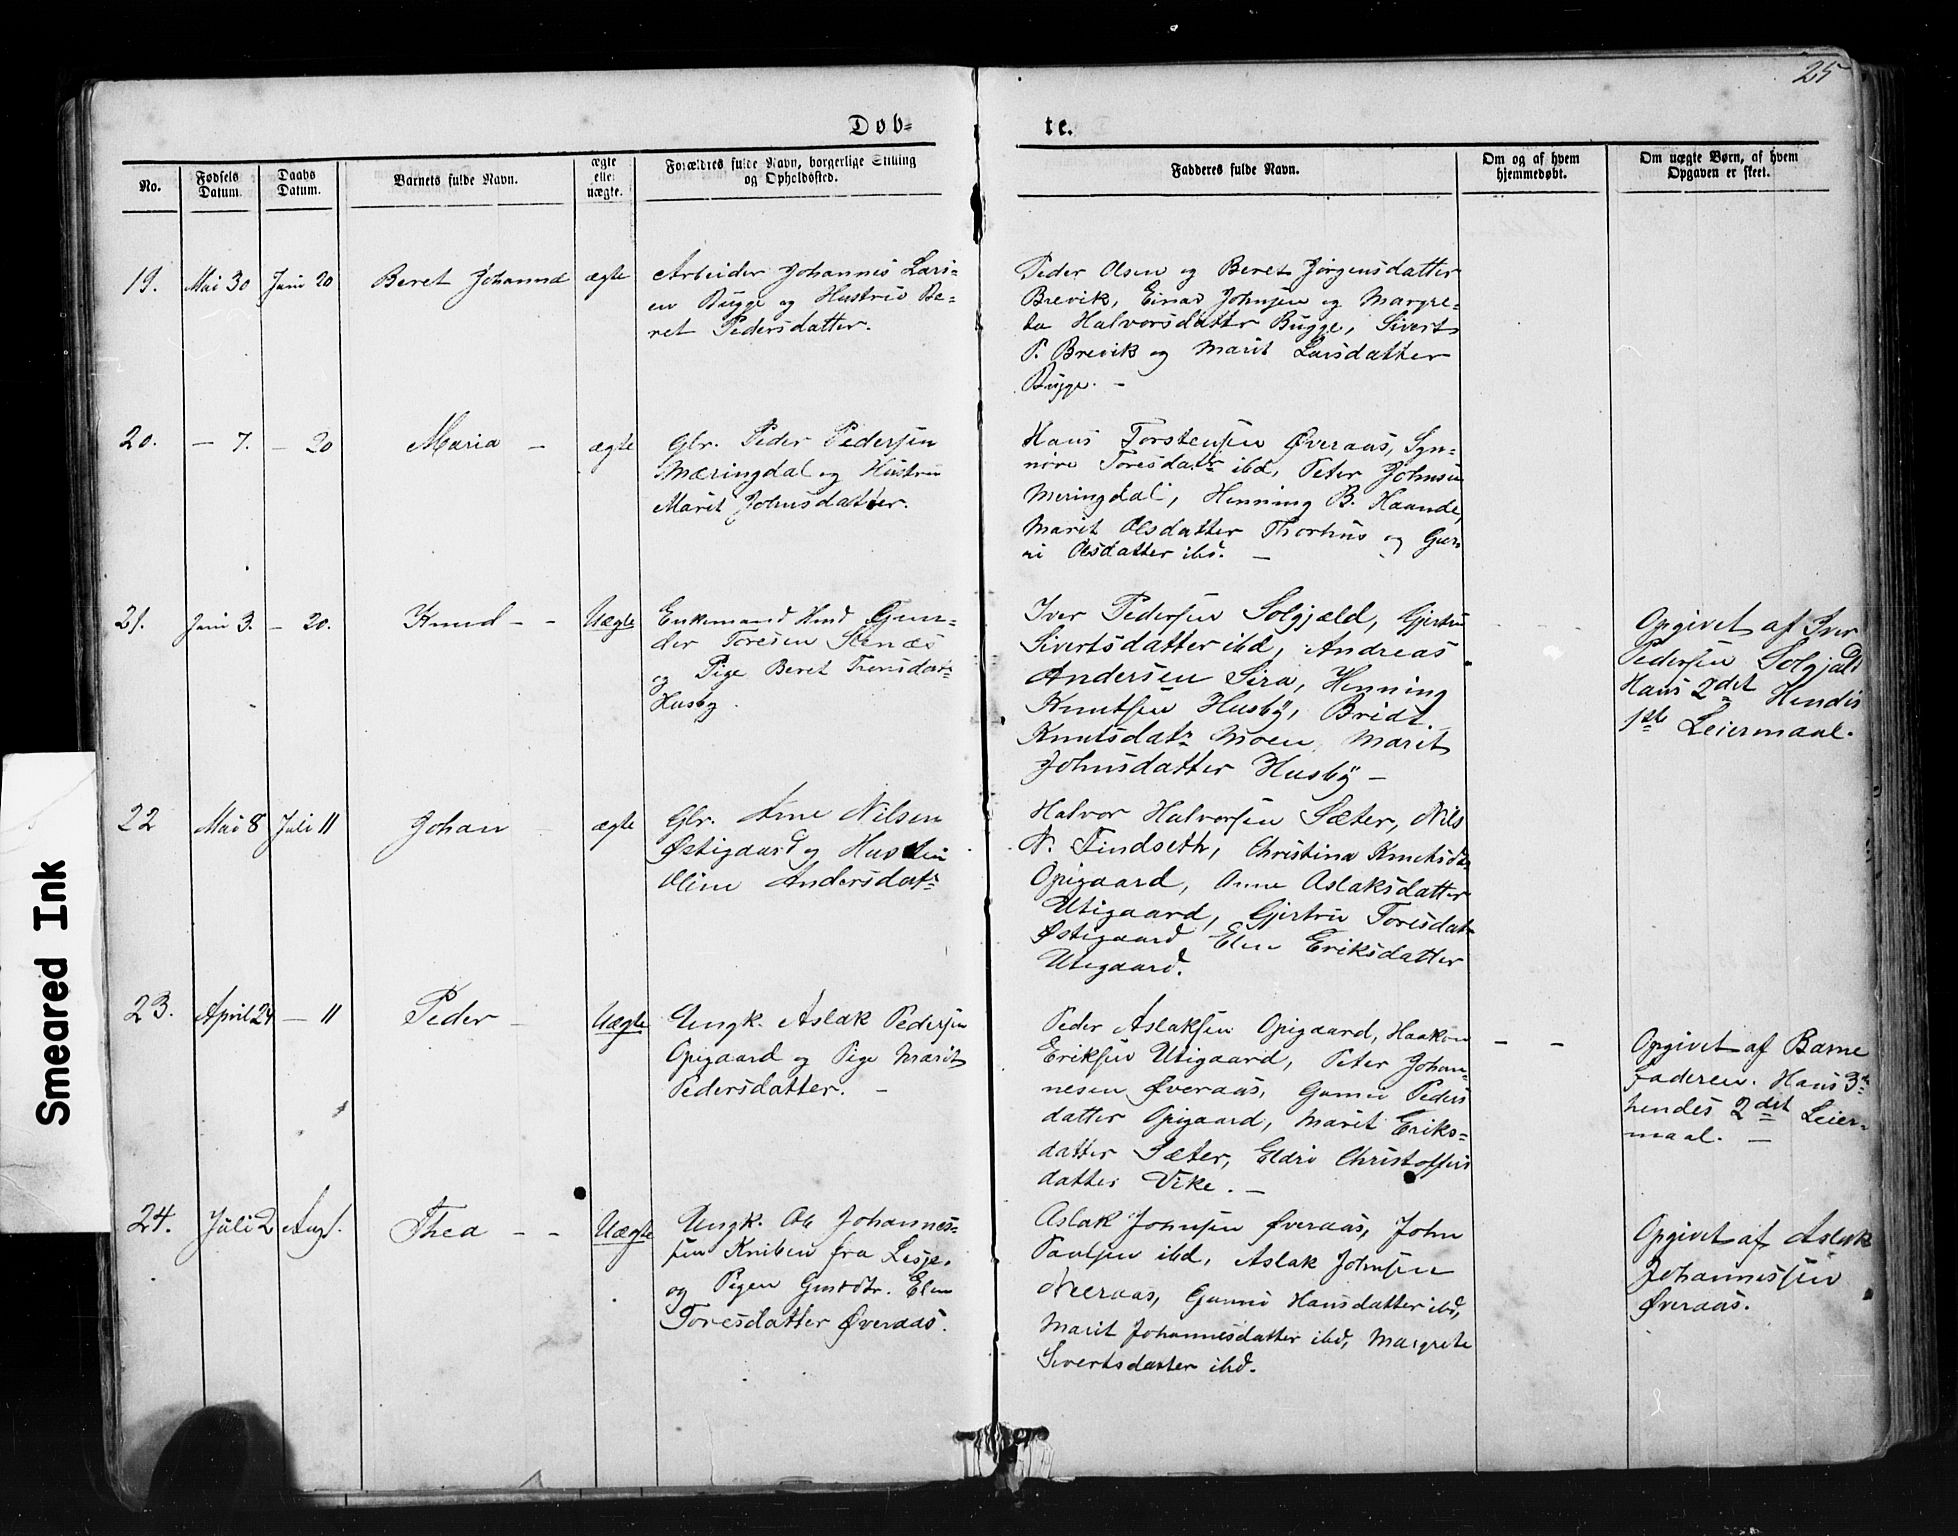 25
Døb-
te.
No.
Fødsels Datum.
Daabs Datum.
Barnets fulde Navn.
ægte eller uægte.
Forældres fulde Navn, borgerlige Stilling og Opholdssted.
Fadderes fulde Navn.
Om og af hvem hjemmedøbt.
Om uægte Børn, af hvem Opgaven er skeet.
19. Mai 30 Juni 20 Beret Johanna ægte
Arbeider Johannes Lars-
en Bugge og Hustru Be-
ret Pedersdatter.
Peder Olsen og Beret Jørgensdatter
Brevik, Einar Johnsen og Margre-
ta Halvorsdatter Bugge, Sivert
P. Brevik og Marit Larsdatter
Bugge. -
20. - 7. - 20 Maria - ægte
Gbr. Peder Pedersen
Mæringdal og Hustru
Marit Johnsdatter.
Hans Torstensen Øveraas, Syn-
nøve Toresdatr ibd, Peter Johnsen
Meringdal, Henning B. Haande,
Marit Olsdatter Thorhus og Gur-
ni Olsdatter ibd. -
21. Juni 3. - 20. Knud - - Uægte
Enkemand Gun-
der Toresen Stenæs
og Pige Beret
Husby.
Iver Pedersen Solgjæld, Gjertru
Sivertsdatter ibd, Andreas
Andersen Sira, Henning
Knutsen Husby, Bridt
Knutsdatr Moen, Marit
Johnsdatter Husby -
Opgivet af Iver
Pedersen Solgjæld
Hans 2det Hendes
1ste Leiermaal.
22 Mai 8 Juli 11 Johan - ægte
Gbr. Arne Nilsen
Østigaard og Hustru
Oline Andersdatr
Halvor Halvorsen Sæter, Nils
N. Findseth, Christina Knutsdr
Opigaard, Anne Aslaksdatter
Utigaard, Gjertru Toresdatr
Østigaard Elen Eriksdatter
Utigaard.
23. April 24 - 11 Peder - Uægte
Ungk. Aslak Pedersen
Opigaard og Pige Marit
Pedersdatter. -
Peder Aslaksen Opigaard, Haakon
Eriksen Utigaard, Peter Johan-
nesen Øveraas, Gunni Peders
datter Opigaard, Marit Eriks-
datter Sæter, Eldri Christoffers
datter Vike. -
- -
Opgivet af Barne
faderen. Hans 3de
hendes 2det Leier-
maal. -
24. Juli 2 Aug 1. Thea - - Uægte
Ungk. Ole Johannes-
sen Kniben fra Lesje.
og Pigen Elen
Toresdatter Øveraas.
Aslak Johnsen Øveraas, John
Paulsen ibd, Aslak Johnsen
Neeraas, Gunni Hansdatter ibd,
Marit Johannesdatter ibd, Margrete
Sivertsdatter ibd.
Opgivet af Aslak
Johannessen
Øveraas.
Smeared Ink